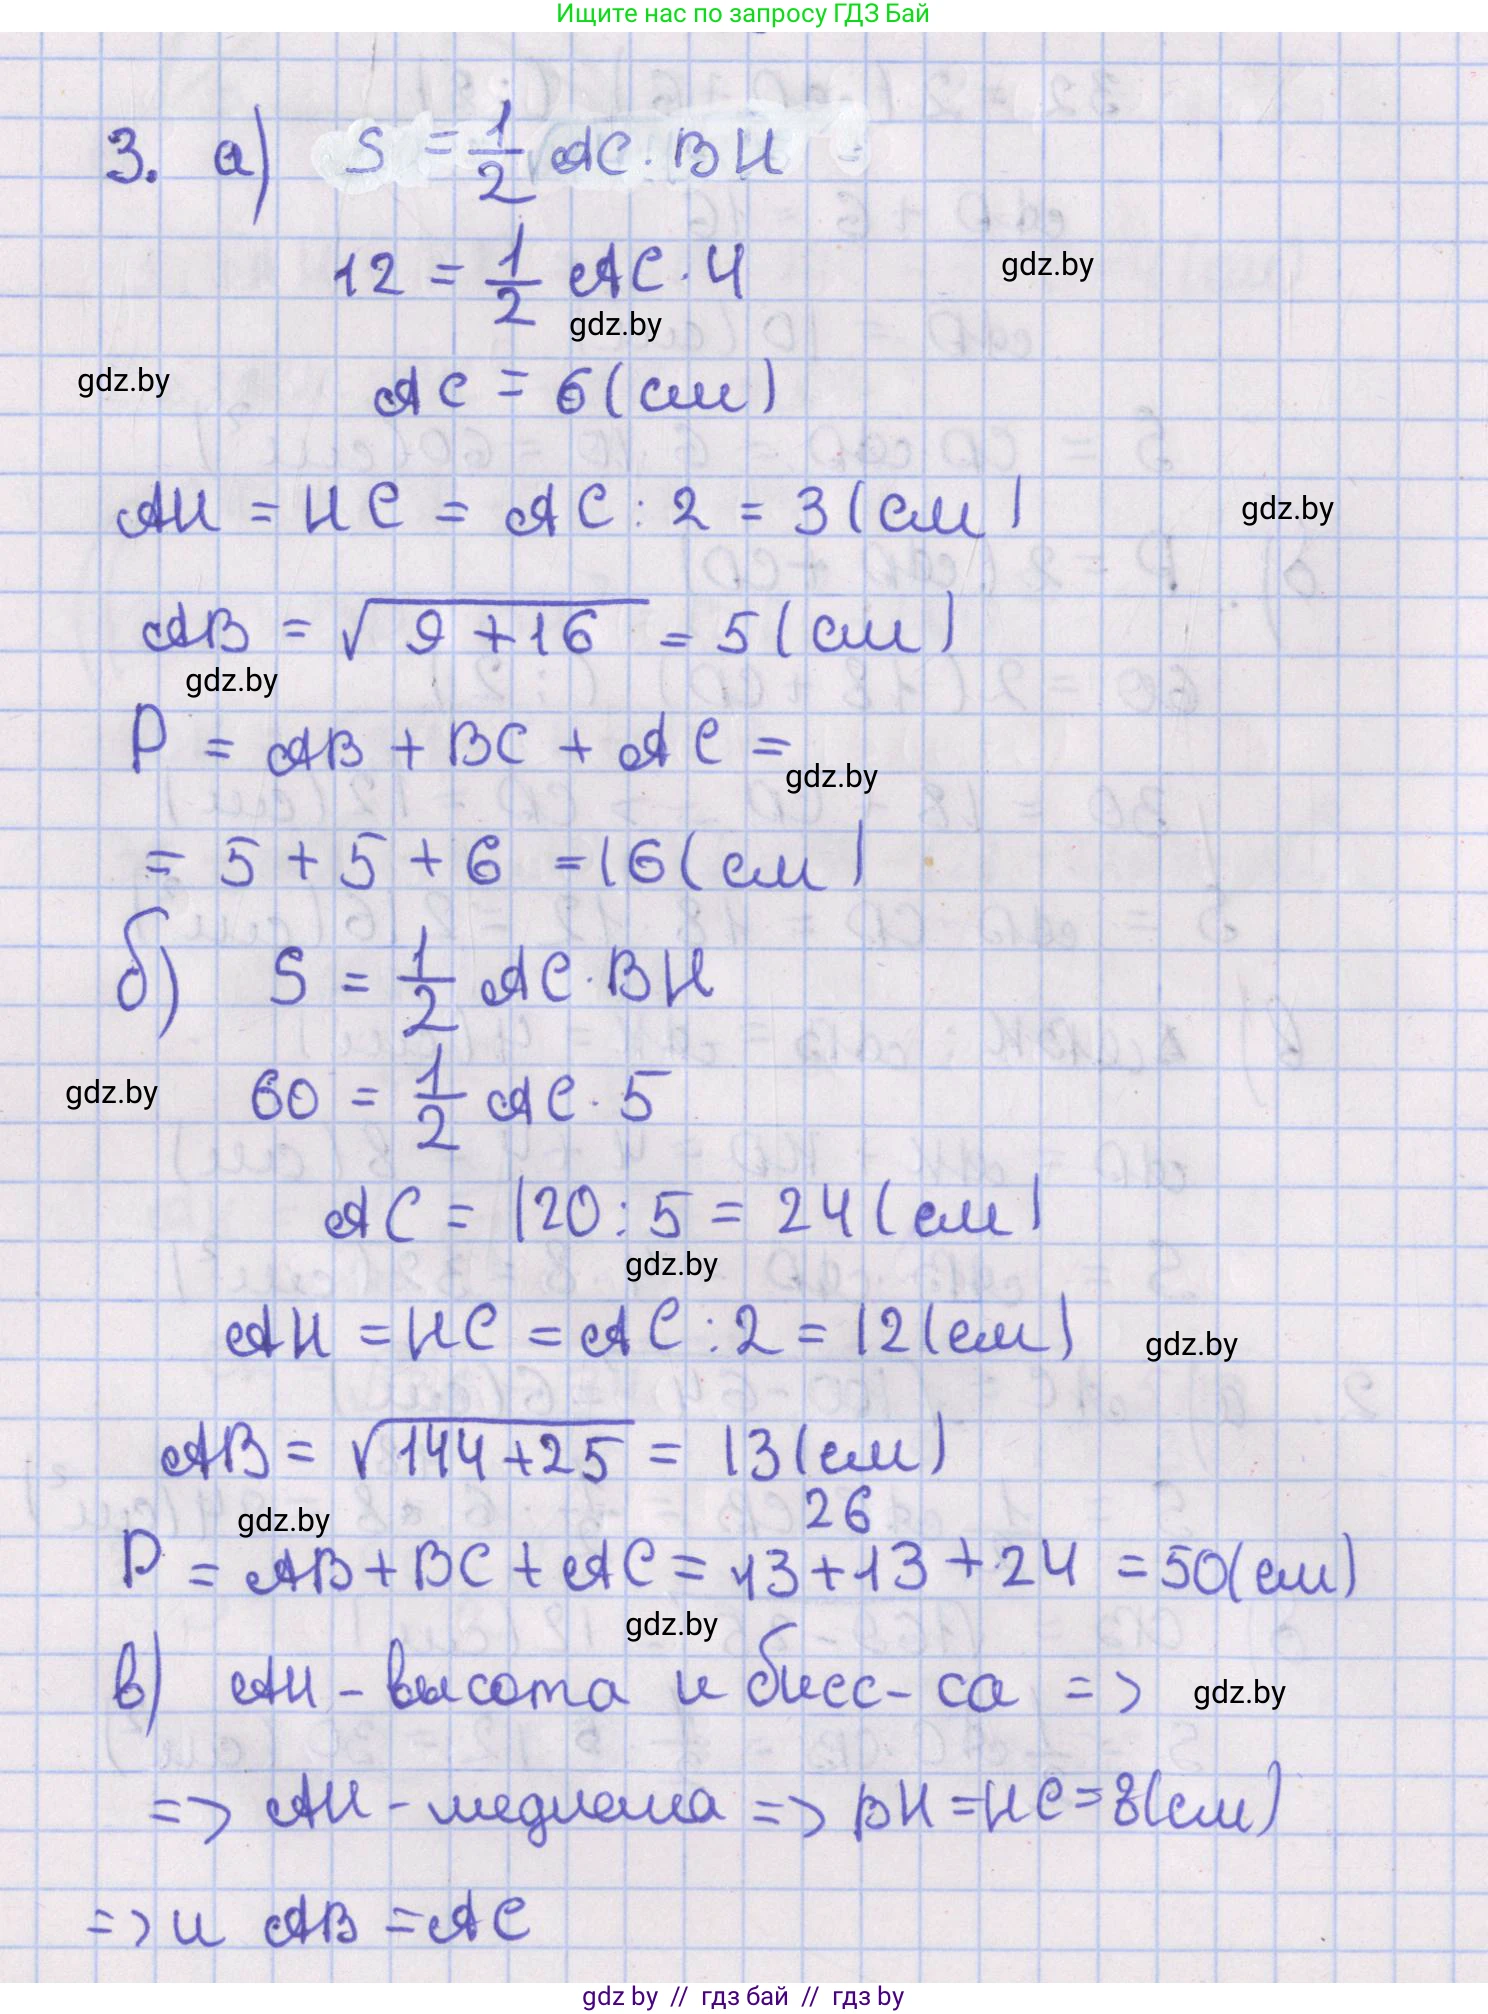 Ищите нас по запросу ГДЗ Бай
3. а) S = 1/2 AC · BH =
12 = 1/2 AC · 4
gdz.by
gdz.by
gdz.by
AC = 6 (см)
AH = HC = AC : 2 = 3 (см)
gdz.by
AB = √(9 + 16) = 5 (см)
gdz.by
P = AB + BC + AC =
gdz.by
= 5 + 5 + 6 = 16 (см)
б) S = 1/2 AC · BH
gdz.by
60 = 1/2 AC · 5
AC = 120 : 5 = 24 (см)
gdz.by
AH = HC = AC : 2 = 12 (см)
gdz.by
AB = √(144 + 25) = 13 (см)
26
gdz.by
P = AB + BC + AC = 13 + 13 + 24 = 50 (см)
gdz.by
в) AH - высота и бисс-са =>
gdz.by
=> AH - медиана => BH = HC = 8 (см)
=> и AB = AC
gdz by // гдз бай // гдз by